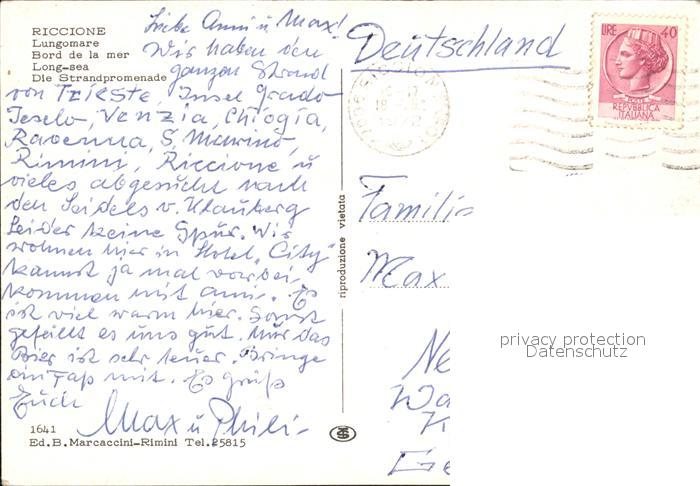 RICCIONE
Lungomare
Bord de la mer
Long-sea
Die Strandpromenade
Liebe Anni u Max!
Wir haben den
ganzen Strand
von Trieste, Insel Grado
Jesolo, Venzia, Chiogia,
Ravenna, S. Marino,
Rimini, Riccione u
vieles abgesucht nach
den Seidels v.
Leider keine Spur. Wir
wohnen hier in Hotel „City"
kannst ja mal vorbei
kommen mit Anni. Es
ist viel warm hier. Sonst
gefällt es uns gut. Nur das
Bier ist sehr teuer. Bringe
ein Faß mit. Es grüß
Euch
Max u Phili-
1641
Ed.B.Marcaccini-Rimini Tel.25815
riproduzione vietata
Deutschland
LIRE 40
POSTE
REPVBBLICA
ITALIANA
Famili
Max
Ne
Wa
Ge
privacy protection
Datenschutz